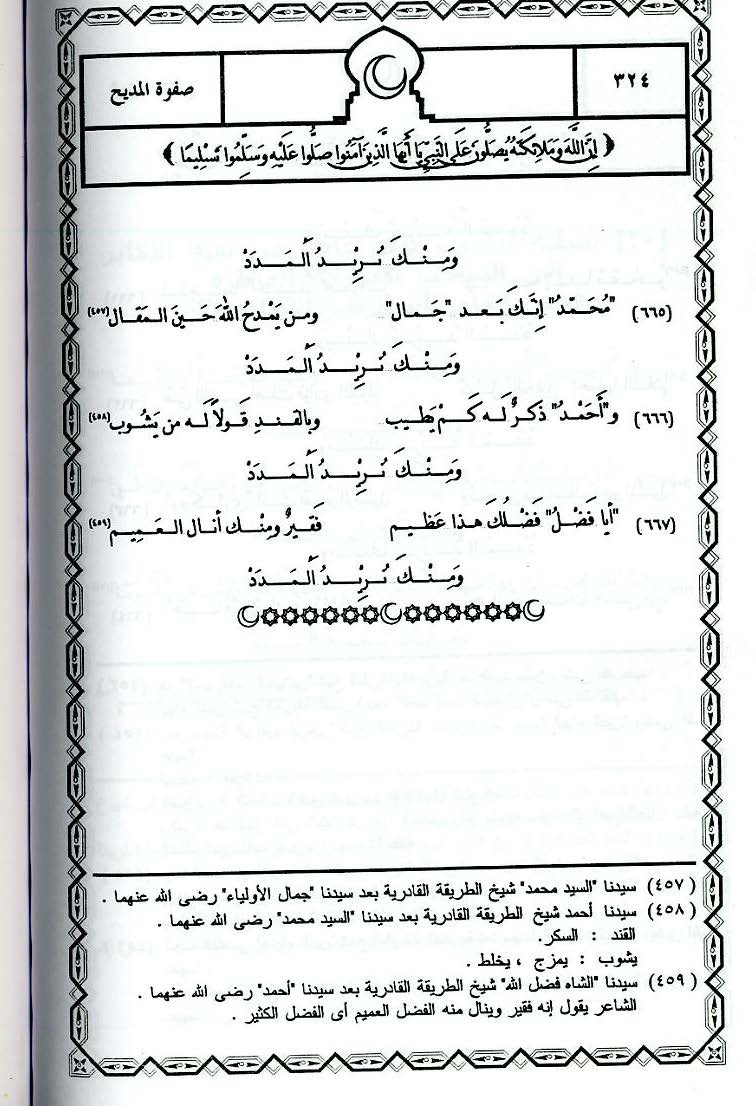 ٣٢٤
صفوة المديح
﴿ إِنَّ اللَّهَ وَمَلَائِكَتَهُ يُصَلُّونَ عَلَى النَّبِيِّ يَا أَيُّهَا الَّذِينَ آمَنُوا صَلُّوا عَلَيْهِ وَسَلِّمُوا تَسْلِيمًا ﴾
وَمِنْكَ نُرِيْدُ الْمَدَدْ
(٦٦٥) "مُحَمَّدُ" إِنَّكَ بَعد "جَمال" ومن يَمْدحُ اللهَ حَينَ المقال (٤٥٧)
وَمِنْكَ نُرِيْدُ الْمَدَدْ
(٦٦٦) و"أَحْمَدُ" ذكرٌ له كَمْ يَطيب وبالقندِ قَولاً له من يَشُوب (٤٥٨)
وَمِنْكَ نُرِيْدُ الْمَدَدْ
(٦٦٧) "أيا فَضْلُ" فَضْلُكَ هذا عَظيم فَقيرٌ ومِنْك أنال العَمِيم (٤٥٩)
وَمِنْكَ نُرِيْدُ الْمَدَدْ
(٤٥٧) سيدنا "السيد محمد" شيخ الطريقة القادرية بعد سيدنا "جمال الأولياء" رضى الله عنهما .
(٤٥٨) سيدنا أحمد شيخ الطريقة القادرية بعد سيدنا "السيد محمد" رضى الله عنهما .
القند : السكر.
يشوب : يمزج ، يخلط .
(٤٥٩) سيدنا "الشاه فضل الله" شيخ الطريقة القادرية بعد سيدنا "أحمد" رضى الله عنهما .
الشاعر يقول إنه فقير وينال منه الفضل العميم أى الفضل الكثير .